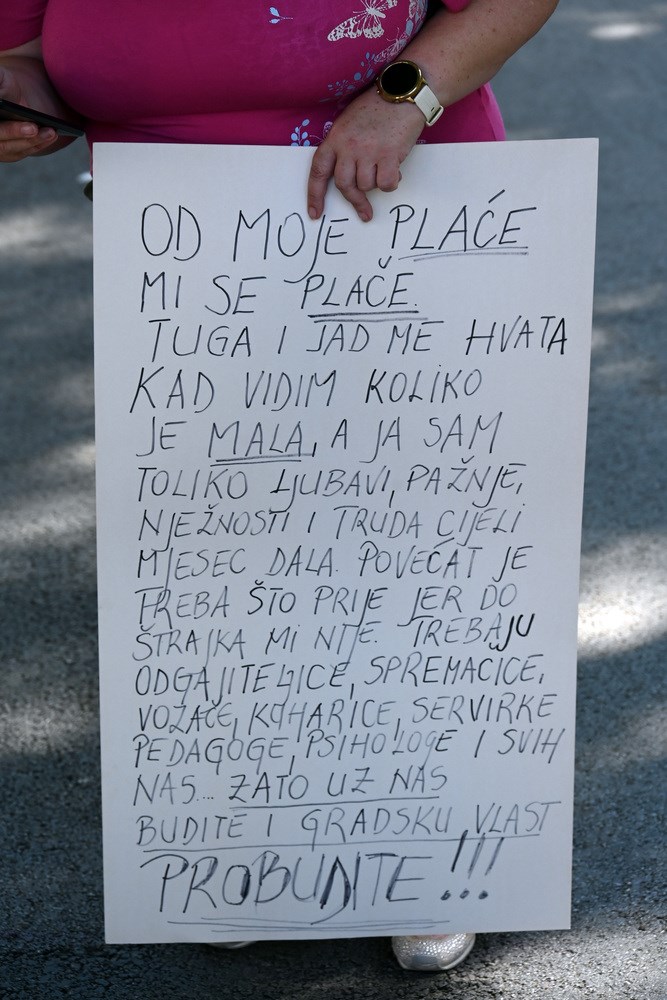 OD MOJE PLAĆE
MI SE PLAČE.
TUGA I JAD ME HVATA
KAD VIDIM KOLIKO
JE MALA, A JA SAM
TOLIKO LJUBAVI, PAŽNJE,
NJEŽNOSTI I TRUDA CIJELI
MJESEC DALA. POVEĆAT JE
TREBA ŠTO PRIJE JER DO
ŠTRAJKA MI NIJE. TREBAJU
ODGAJITELJICE, SPREMAČICE,
VOZAČE, KUHARICE, SERVIRKE
PEDAGOGE, PSIHOLOGE I SVIH
NAS... ZATO UZ NAS
BUDITE I GRADSKU VLAST
PROBUDITE!!!